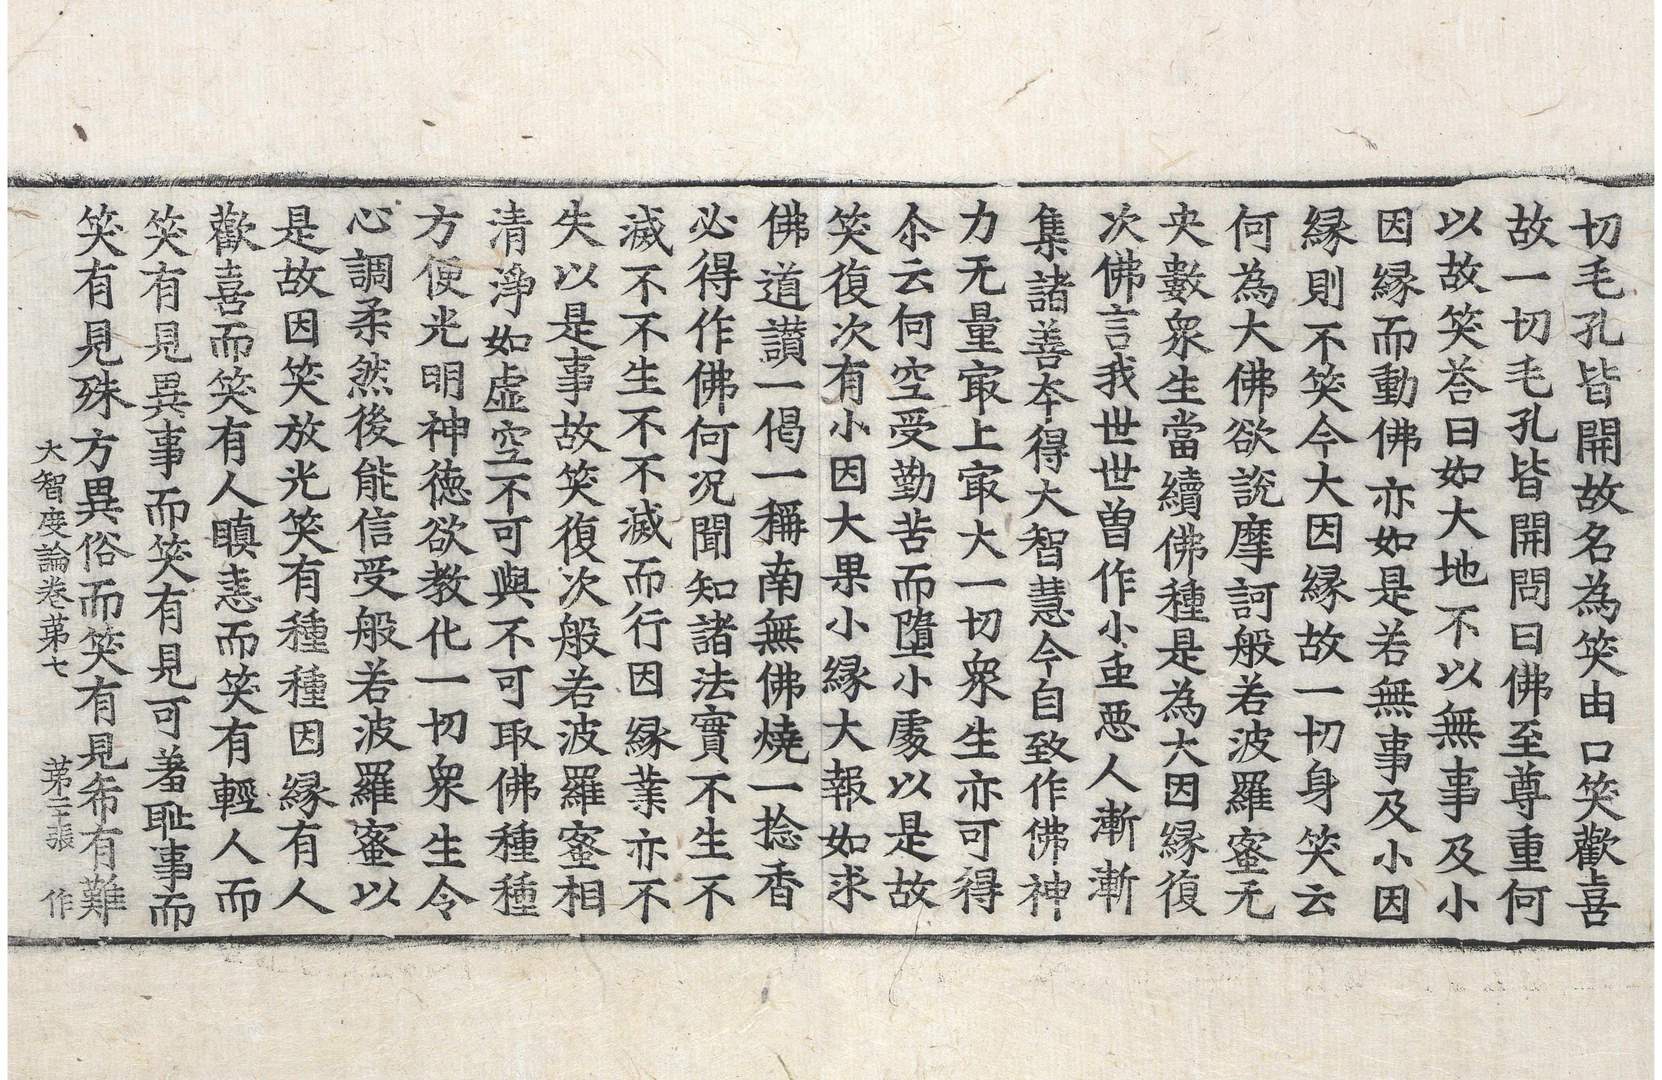 切毛孔皆開故名為笑由口笑歡喜
故一切毛孔皆開問曰佛至尊重何
以故笑荅曰如大地不以無事及小
因縁而動佛亦如是若無事及小因
縁則不笑今大因縁故一切身笑云
何為大佛欲說摩訶般若波羅蜜无
央數衆生當續佛種是為大因縁復
次佛言我世世曽作小䖝惡人漸漸
集諸善夲得大智慧今自致作佛神
力无量㝡上㝡大一切衆生亦可得
尒云何空受勤苦而墮小處以是故
笑復次有小因大果小縁大報如求
佛道讃一偈一稱南無佛燒一捻香
必得作佛何况聞知諸法實不生不
滅不不生不不滅而行因縁業亦不
失以是事故笑復次般若波羅蜜相
清淨如虚空不可與不可取佛種種
方便光明神徳欲教化一切衆生令
心調柔然後能信受般若波羅蜜以
是故因笑放光笑有種種因縁有人
歡喜而笑有人瞋恚而笑有輕人而
笑有見異事而笑有見可羞耻事而
笑有見殊方異俗而笑有見希有難
大智度論卷苐七 苐二張 作